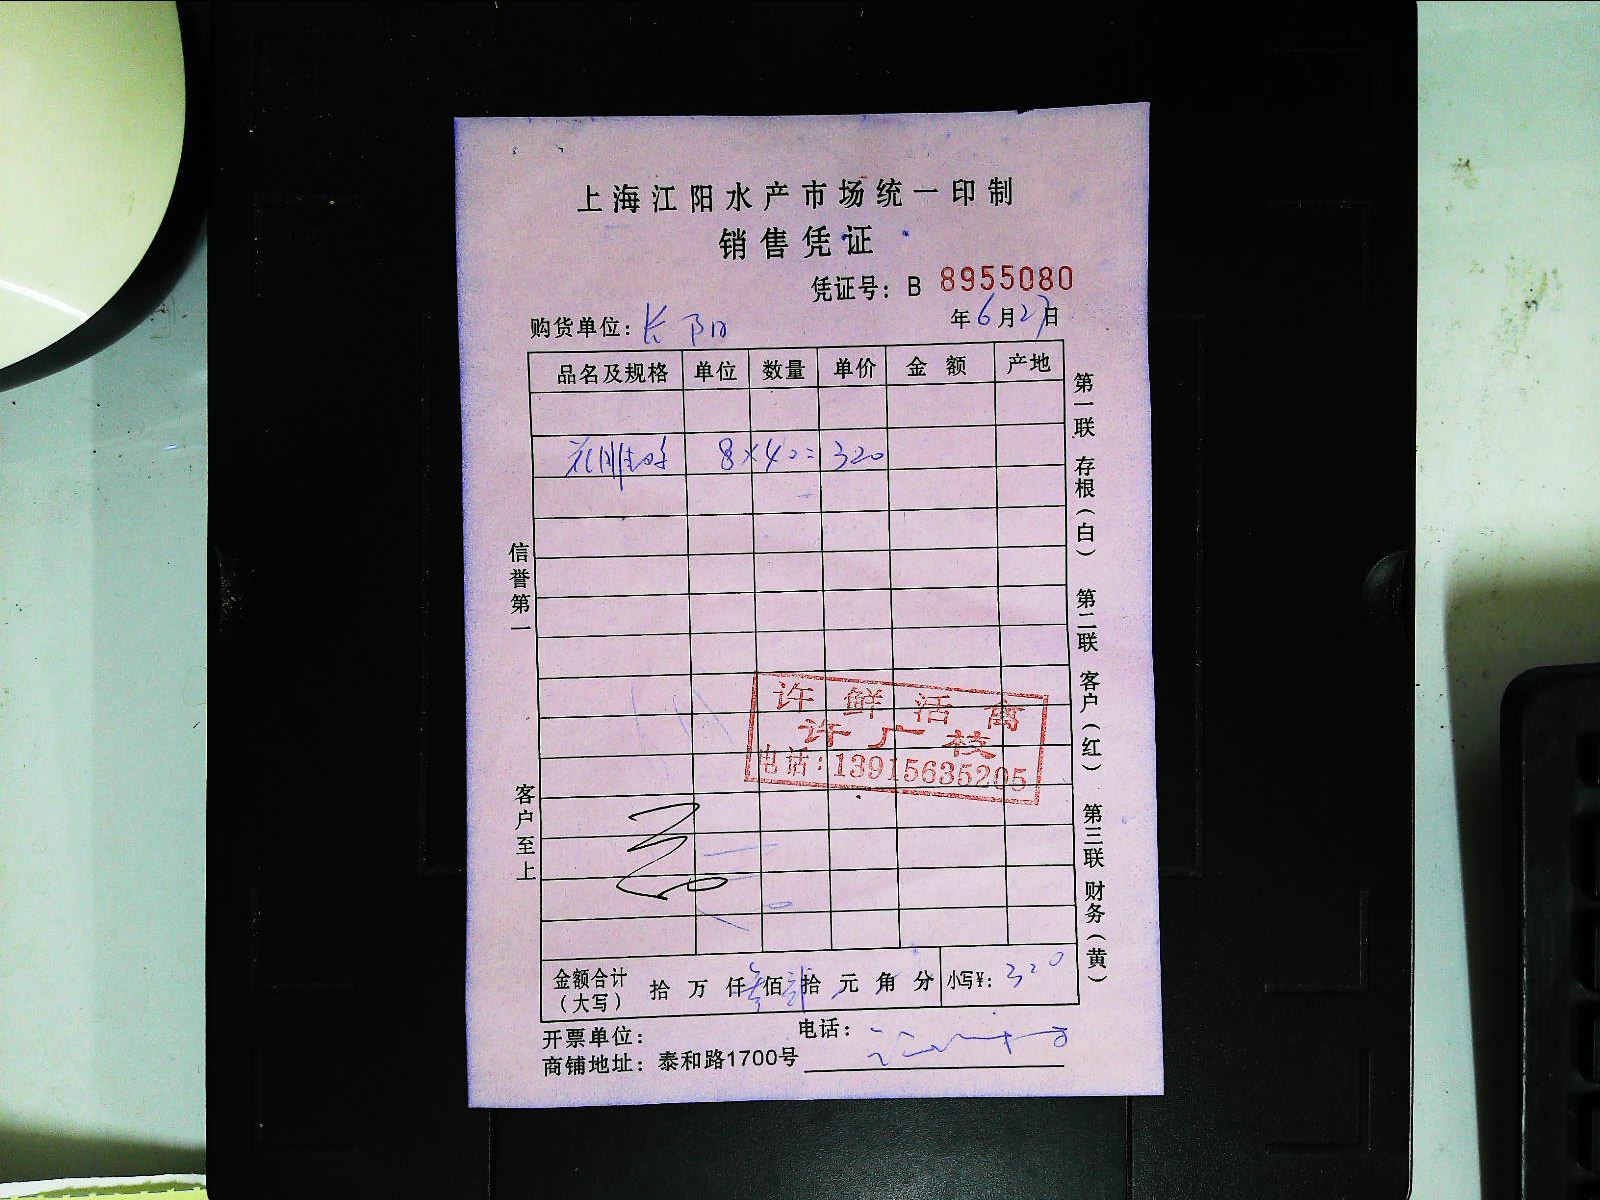 上海江阳水产市场统一印制
销售凭证
凭证号：B 8955080
购货单位：长阳 年6月27日
品名及规格 单位 数量 单价 金额 产地
8×40=320
信誉第一
客户至上
第一联 存根（白） 第二联 客户（红） 第三联 财务（黄）
许鲜活禽
许广枝
电话：13915635205
金额合计（大写） 拾 万 仟叁佰贰拾 元 角 分 小写¥：320
开票单位： 电话：
商铺地址：泰和路1700号